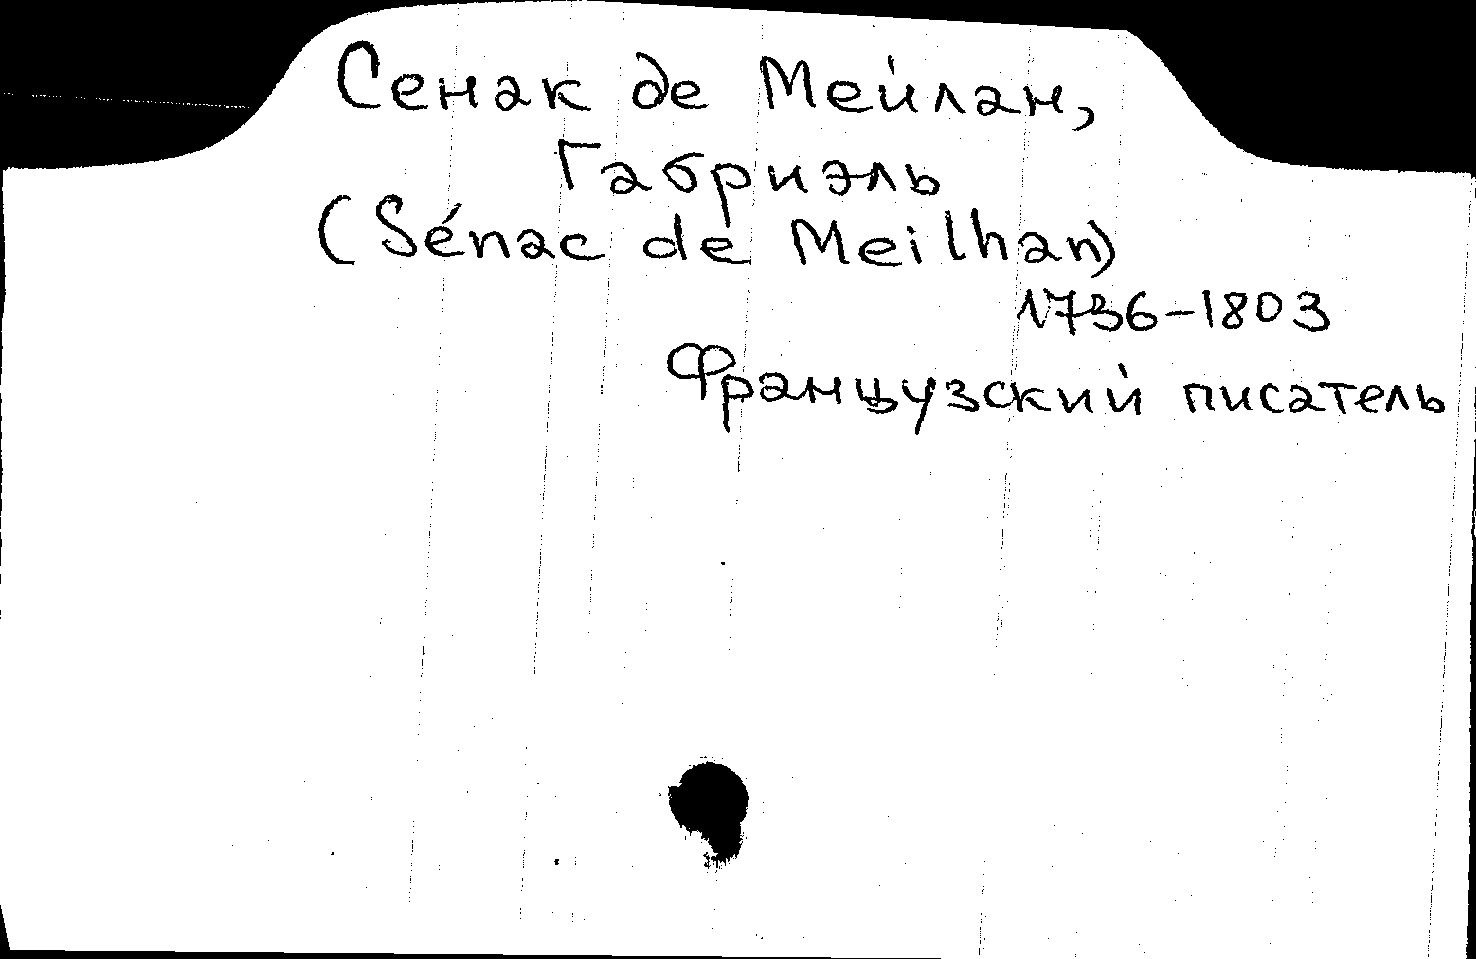 Сенак де Мейлан,
Габриэль
(Sénac de Meilhan)
1736-1803
Французский писатель